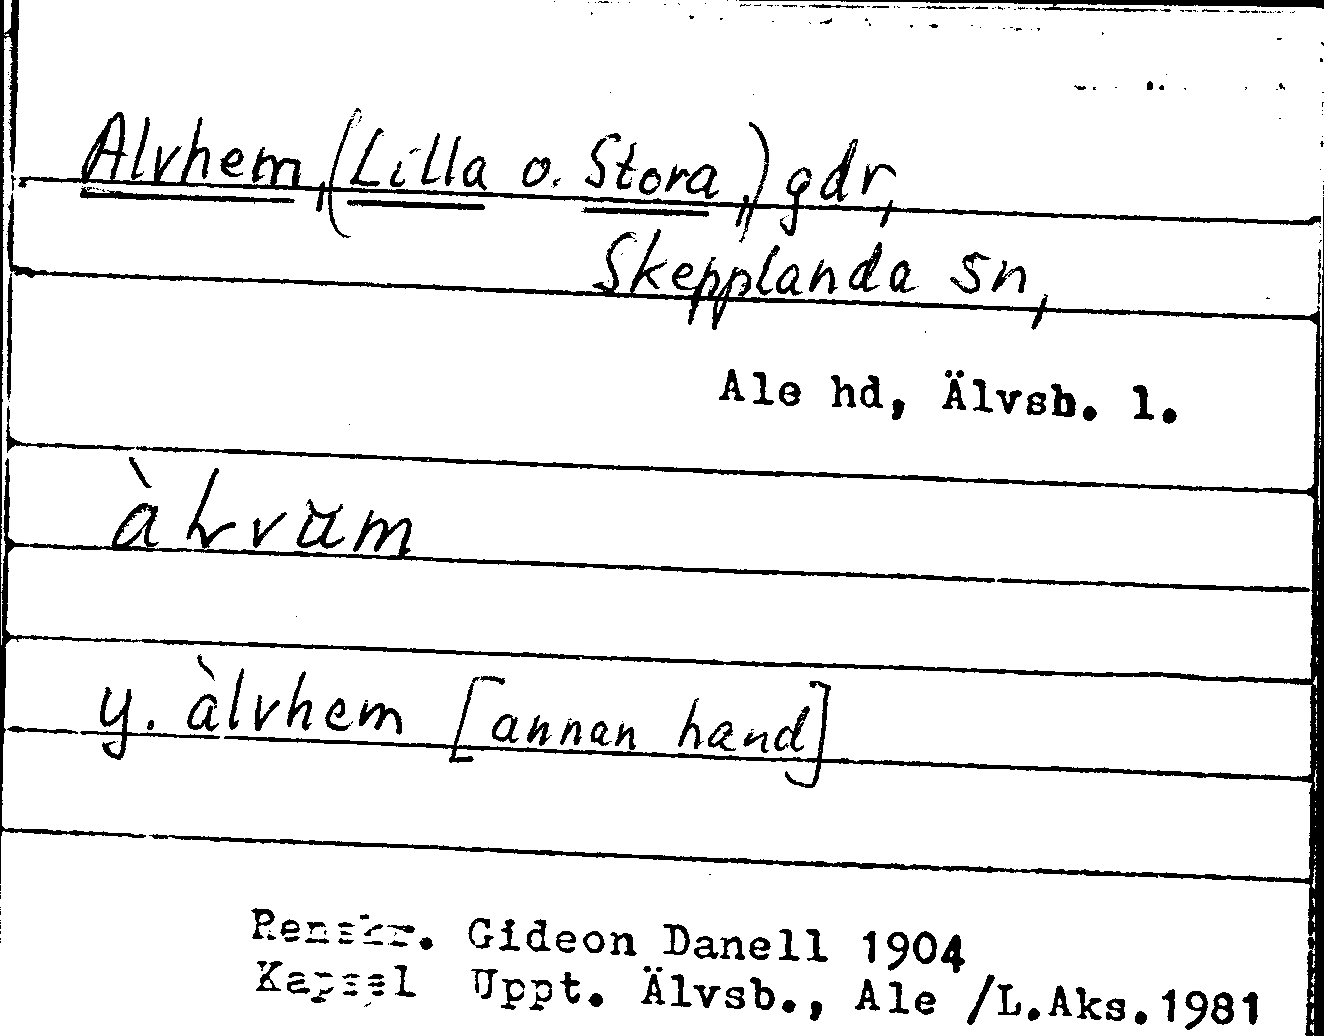 Alvhem, (Lilla o. Stora,) gdr,
Skepplanda sn,
Ale hd, Älvsb. l.
àLvum
y. àlvhem [annan hand]
Renskr. Gideon Danell 1904
Kapsel Uppt. Älvsb., Ale /L.Aks.1981